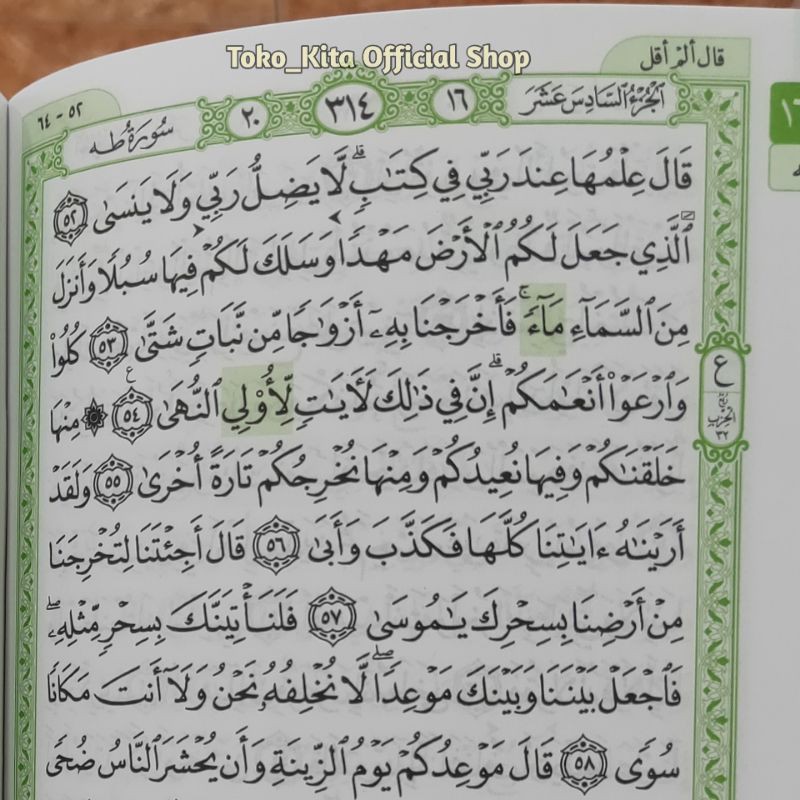 Toko_Kita Official Shop
قال ألم أقل
٥٢ - ٦٤
سُورَةُ طه
٢٠
٣١٤
١٦
الجُزْءُ السَّادِسَ عَشَرَ
قَالَ عِلْمُهَا عِندَ رَبِّي فِي كِتَٰبٍۖ لَّا يَضِلُّ رَبِّي وَلَا يَنسَى ٥٢
ٱلَّذِي جَعَلَ لَكُمُ ٱلْأَرْضَ مَهْدًا وَسَلَكَ لَكُمْ فِيهَا سُبُلًا وَأَنزَلَ
مِنَ ٱلسَّمَآءِ مَآءًۚ فَأَخْرَجْنَا بِهِۦٓ أَزْوَٰجًا مِّن نَّبَاتٍ شَتَّىٰ ٥٣ كُلُوا۟
وَٱرْعَوْا۟ أَنْعَٰمَكُمْۗ إِنَّ فِي ذَٰلِكَ لَءَايَٰتٍ لِّأُو۟لِي ٱلنُّهَىٰ ٥٤ ۞ مِنْهَا
خَلَقْنَٰكُمْ وَفِيهَا نُعِيدُكُمْ وَمِنْهَا نُخْرِجُكُمْ تَارَةً أُخْرَىٰ ٥٥ وَلَقَدْ
أَرَيْنَٰهُ ءَايَٰتِنَا كُلَّهَا فَكَذَّبَ وَأَبَىٰ ٥٦ قَالَ أَجِئْتَنَا لِتُخْرِجَنَا
مِنْ أَرْضِنَا بِسِحْرِكَ يَٰمُوسَىٰ ٥٧ فَلَنَأْتِيَنَّكَ بِسِحْرٍ مِّثْلِهِۦۖ
فَٱجْعَلْ بَيْنَنَا وَبَيْنَكَ مَوْعِدًاۖ لَّا نُخْلِفُهُۥ نَحْنُ وَلَآ أَنتَ مَكَانًا
سُوًى ٥٨ قَالَ مَوْعِدُكُمْ يَوْمُ ٱلزِّينَةِ وَأَن يُحْشَرَ ٱلنَّاسُ ضُحًى
ع
ربع
الحزب
٣٢